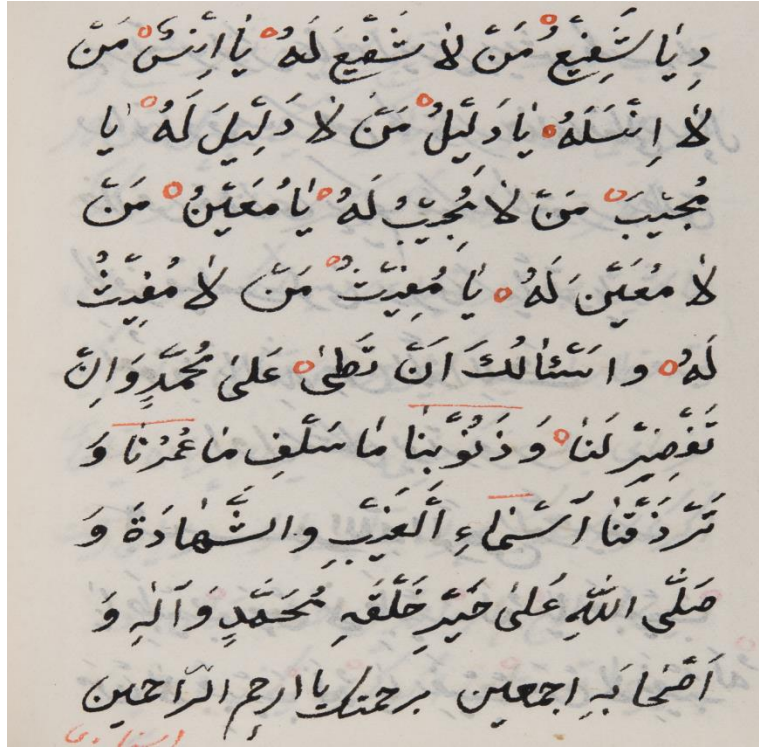 وِيَا شَفِيْعُ مَنْ لَا شَفِيْعَ لَهُ يَا اَنِيْسُ مَنْ
لَا اَنِيْسَ لَهُ يَا دَلِيْلُ مَنْ لَا دَلِيْلَ لَهُ يَا
مُجِيْبَ مَنْ لَا مُجِيْبُ لَهُ يَا مُعِيْنُ مَنْ
لَا مُعِيْنَ لَهُ يَا مُغِيْثُ مَنْ لَا مُغِيْثُ
لَهُ وَاسْئَالُكَ اَنْ تَصَلِّیْ عَلیٰ مُحَمَّدٍ وَاَنْ
تَغْفِيْرَ لَنَا وَ ذَنُوْبَنَا مَا سَلَفِ مَا عُمُرْنَا وَ
تَرْزَقْنَا اَسْمَاءِ الْغَيْبِ وِالشَّهَادَةَ وَ
صَلَّى اللّٰهِ عَلیٰ خَيْرِ خَلْقِهِ مُحَمَّدٍ وَآلِهِ وَ
اَصْحَابِهِ اجمعين برحمتك يا ارحم الرّاحمين